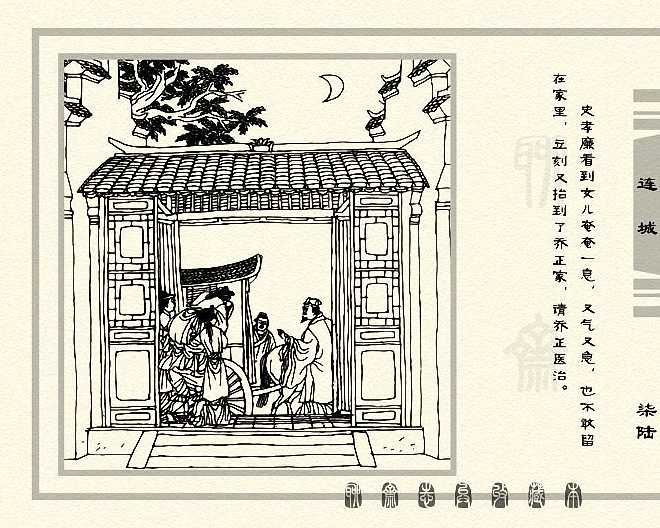 史孝廉看到女儿奄奄一息，又气又急，也不敢留
在家里，立刻又抬到了乔正家，请乔正医治。
连城
柒陆
聊斋志异收藏本